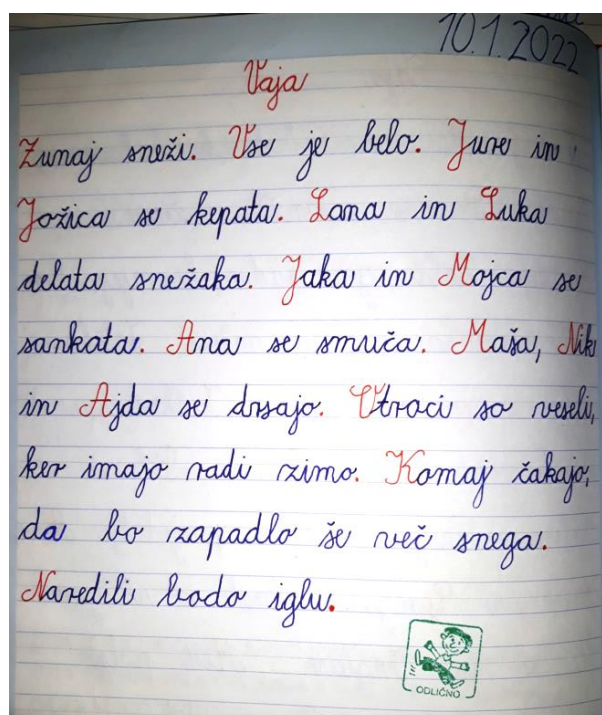 10.1.2022
Vaja
Zunaj sneži. Vse je belo. Jure in
Jožica se kepata. Lana in Luka
delata snežaka. Jaka in Mojca se
sankata. Ana se smuča. Maša, Nik
in Ajda se drsajo. Otroci so veseli,
ker imajo radi zimo. Komaj čakajo,
da bo zapadlo še več snega.
Naredili bodo iglu.
ODLIČNO